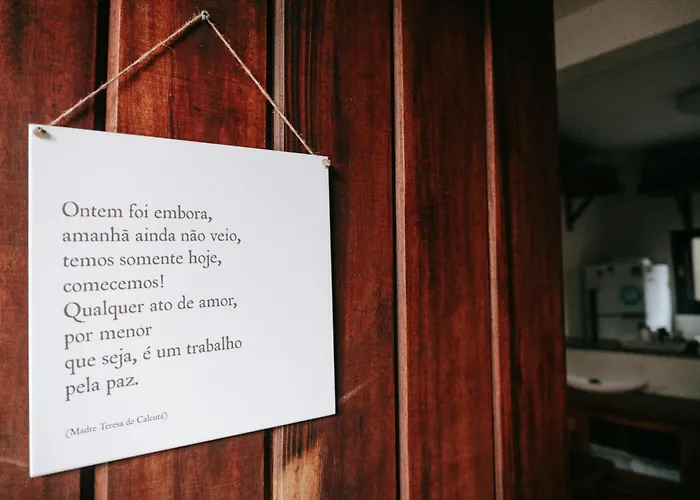 Ontem foi embora,
amanhã ainda não veio,
temos somente hoje,
comecemos!
Qualquer ato de amor,
por menor
que seja, é um trabalho
pela paz.
(Madre Teresa de Calcutá)